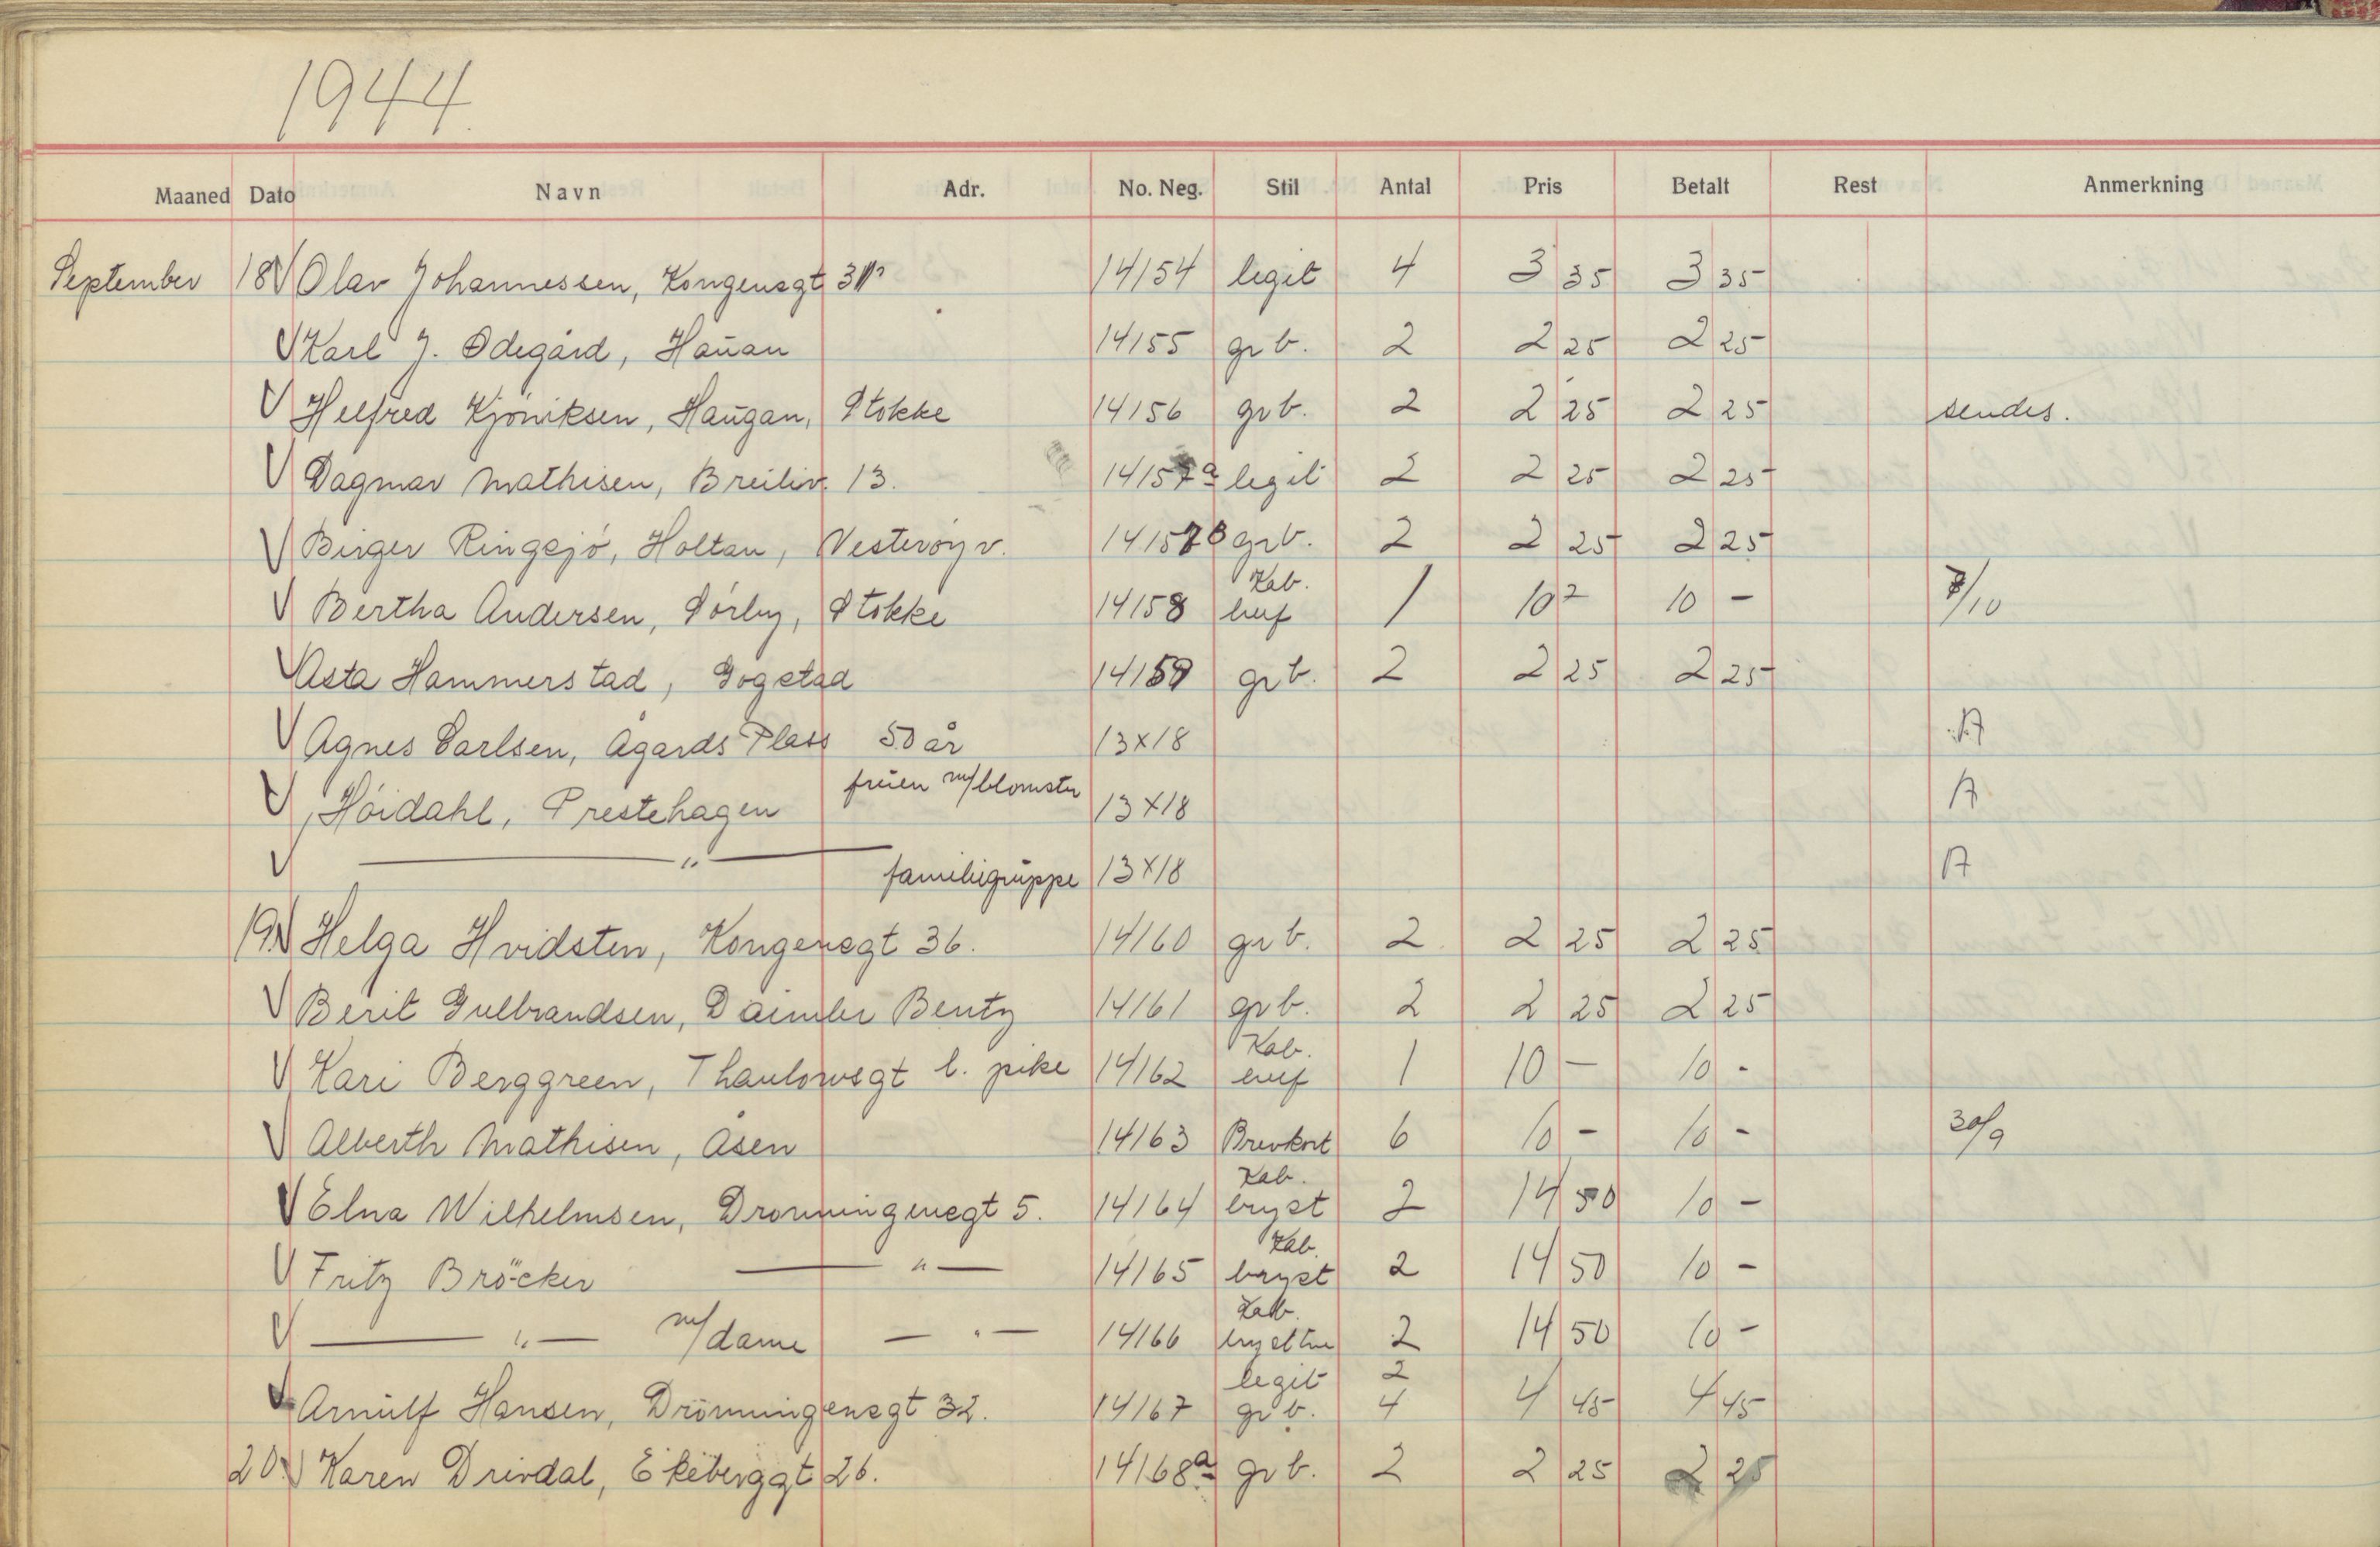 1944.
Maaned Dato Navn Adr. No. Neg. Stil Antal Pris Betalt Rest Anmerkning
September 18 V Olav Johannessen, Kongensgt 14154 legit 4 3 35 3 35
V Karl J. Ödegård, Haüan 14155 grb. 2 2 25 2 25
V Helfred Kjöniksen, Haŭgan, Stokke 14156 grb. 2 2 25 2 25 sendes.
V Dagmar Mathisen, Breiliv. 13. 14157a legit 2 2 25 2 25
V Birger Ringsjö, Holtan, Vesteröyv. 14157B grb. 2 2 25 2 25
Kab.
V Bertha Andersen, Sörby, Stokke 14158 1 10 - 10 - 7/10
V Asta Hammerstad, Gogstad 14159 grb. 2 2 25 2 25
V Agnes Carlsen, Ågårds Plass 50 år 13x18 A
V Höidahl, Prestehagen früen m/blomster 13x18 A
V — " — familiegrüppe 13x18 A
19. V Helga Hvidsten, Kongensgt 36. 14160 grb. 2 2 25 2 25
V Berit Gulbrandsen, Daimler Bentz 14161 grb. 2 2 25 2 25
Kab.
V Kari Berggreen, Thaulowsgt l. pike 14162 1 10 - 10 -
V Alberth Mathisen, Åsen 14163 Brevkort 6 10 - 10 - 30/9
Kab.
V Elna Wilhelmsen, Dronningensgt 5. 14164 bryst 2 14 50 10 -
Kab.
V Fritz Bröcker — " — 14165 bryst 2 14 50 10 -
Kab.
V — " — m/dame — " — 14166 2 14 50 10 -
legit 2
V Arnülf Hansen, Drönningensgt 32. 14167 grb. 4 4 45 4 45
20. V Karen Drivdal, Ekeberggt 26. 14168a grb. 2 2 25 2 25